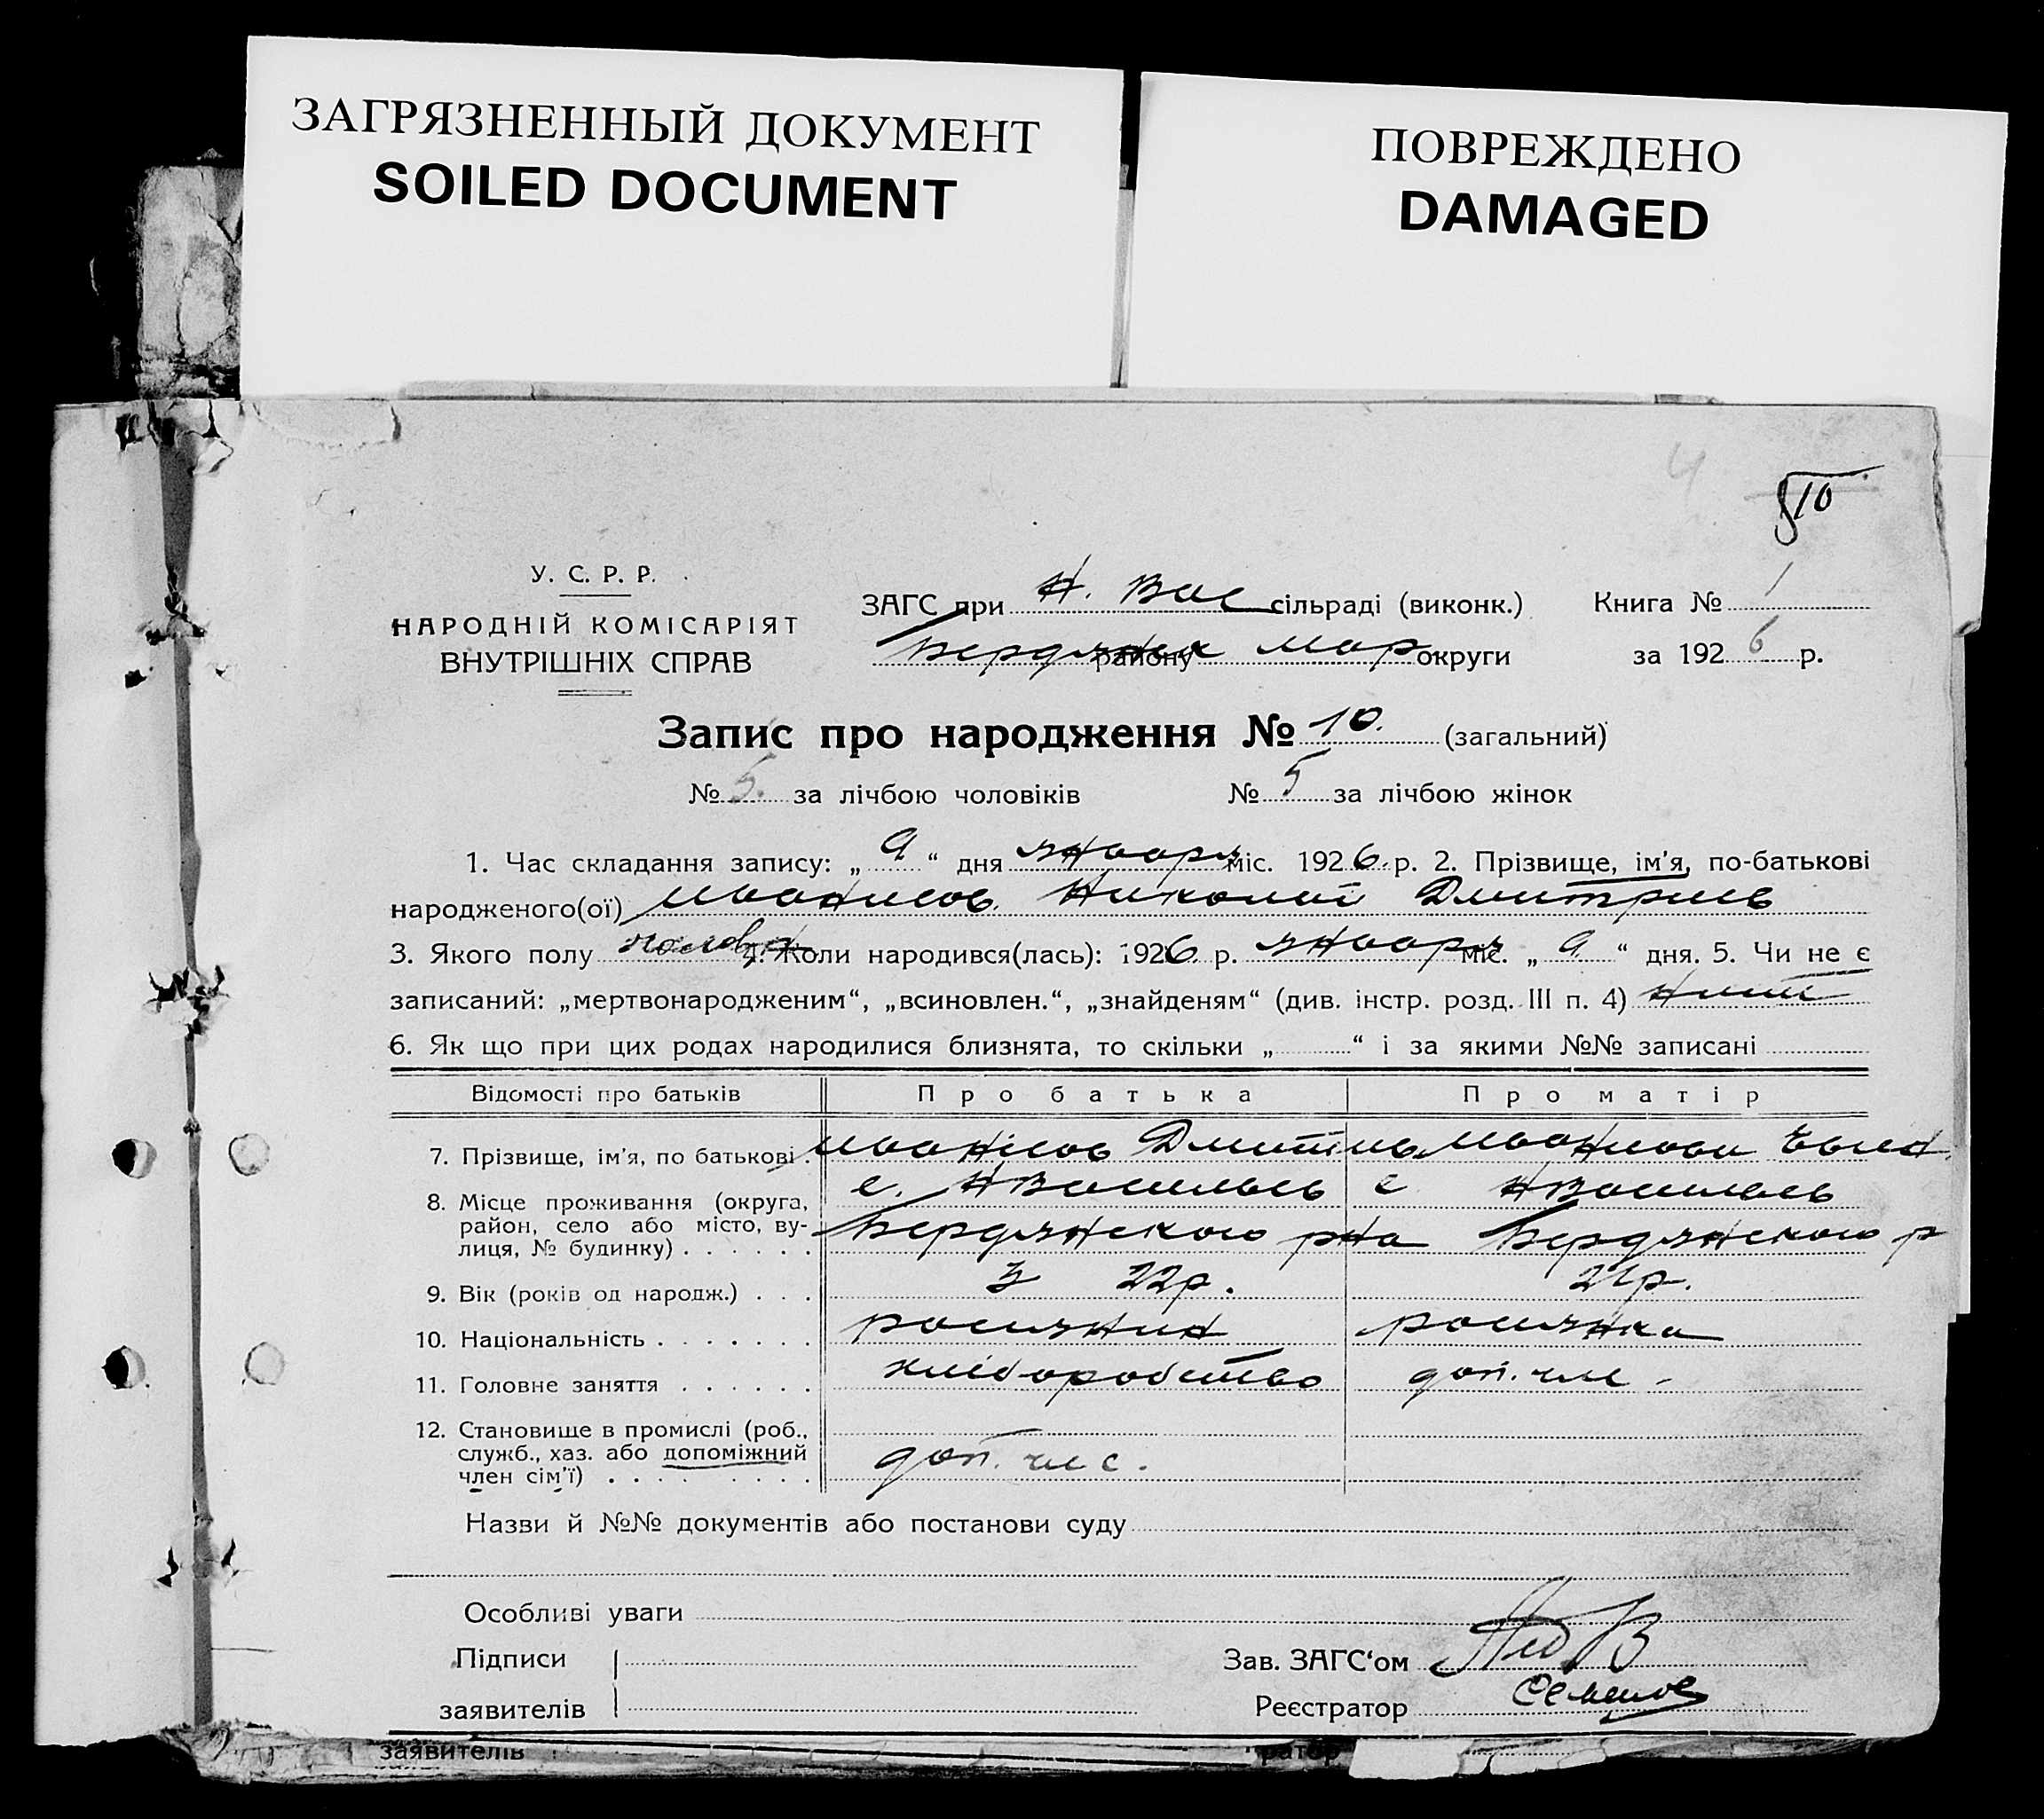 ЗАГРЯЗНЕННЫЙ ДОКУМЕНТ
SOILED DOCUMENT
ПОВРЕЖДЕНО
DAMAGED
4
10
У. С. Р. Р.
НАРОДНІЙ КОМІСАРІЯТ
ВНУТРІШНІХ СПРАВ
ЗАГС при Н. Вас сільраді (виконк.) Книга № 1
Бердянск району Мар округи за 1926 р.
Запис про народження № 10. (загальний)
№ 5. за лічбою чоловіків № 5 за лічбою жінок
1. Час складання запису: „ 9 “ дня января міс. 1926. р. 2. Прізвище, ім'я, по-батькові
народженого(ої) Николай Дмитриев
3. Якого полу 4. Коли народився(лась): 1926 р. января міс. „ 9 “ дня. 5. Чи не є
записаний: „мертвонародженим“, „всиновлен.“, „знайденям“ (див. інстр. розд. III п. 4)
6. Як що при цих родах народилися близнята, то скільки „ “ і за якими №№ записані
Відомості про батьків Про батька Про матір
7. Прізвище, ім'я, по батькові . Дмит
8. Місце проживання (округа, с. НВасильев с НВасильев
район, село або місто, ву- Бердянского рна Бердянского р
лиця, № будинку) . . . . . .
9. Вік (років од народж.) . . . 22р. 21р.
10. Національність . . . . . . . росиянин росиянка
11. Головне заняття . . . . . . хліборобство доп. чле -
12. Становище в промислі (роб.,
служб., хаз. або допоміжний доп. чл с.
член сім'ї) . . . . . . . . .
Назви й №№ документів або постанови суду
Особливі уваги
Підписи Зав. ЗАГС'ом
заявителів Реєстратор
заявителів ратор